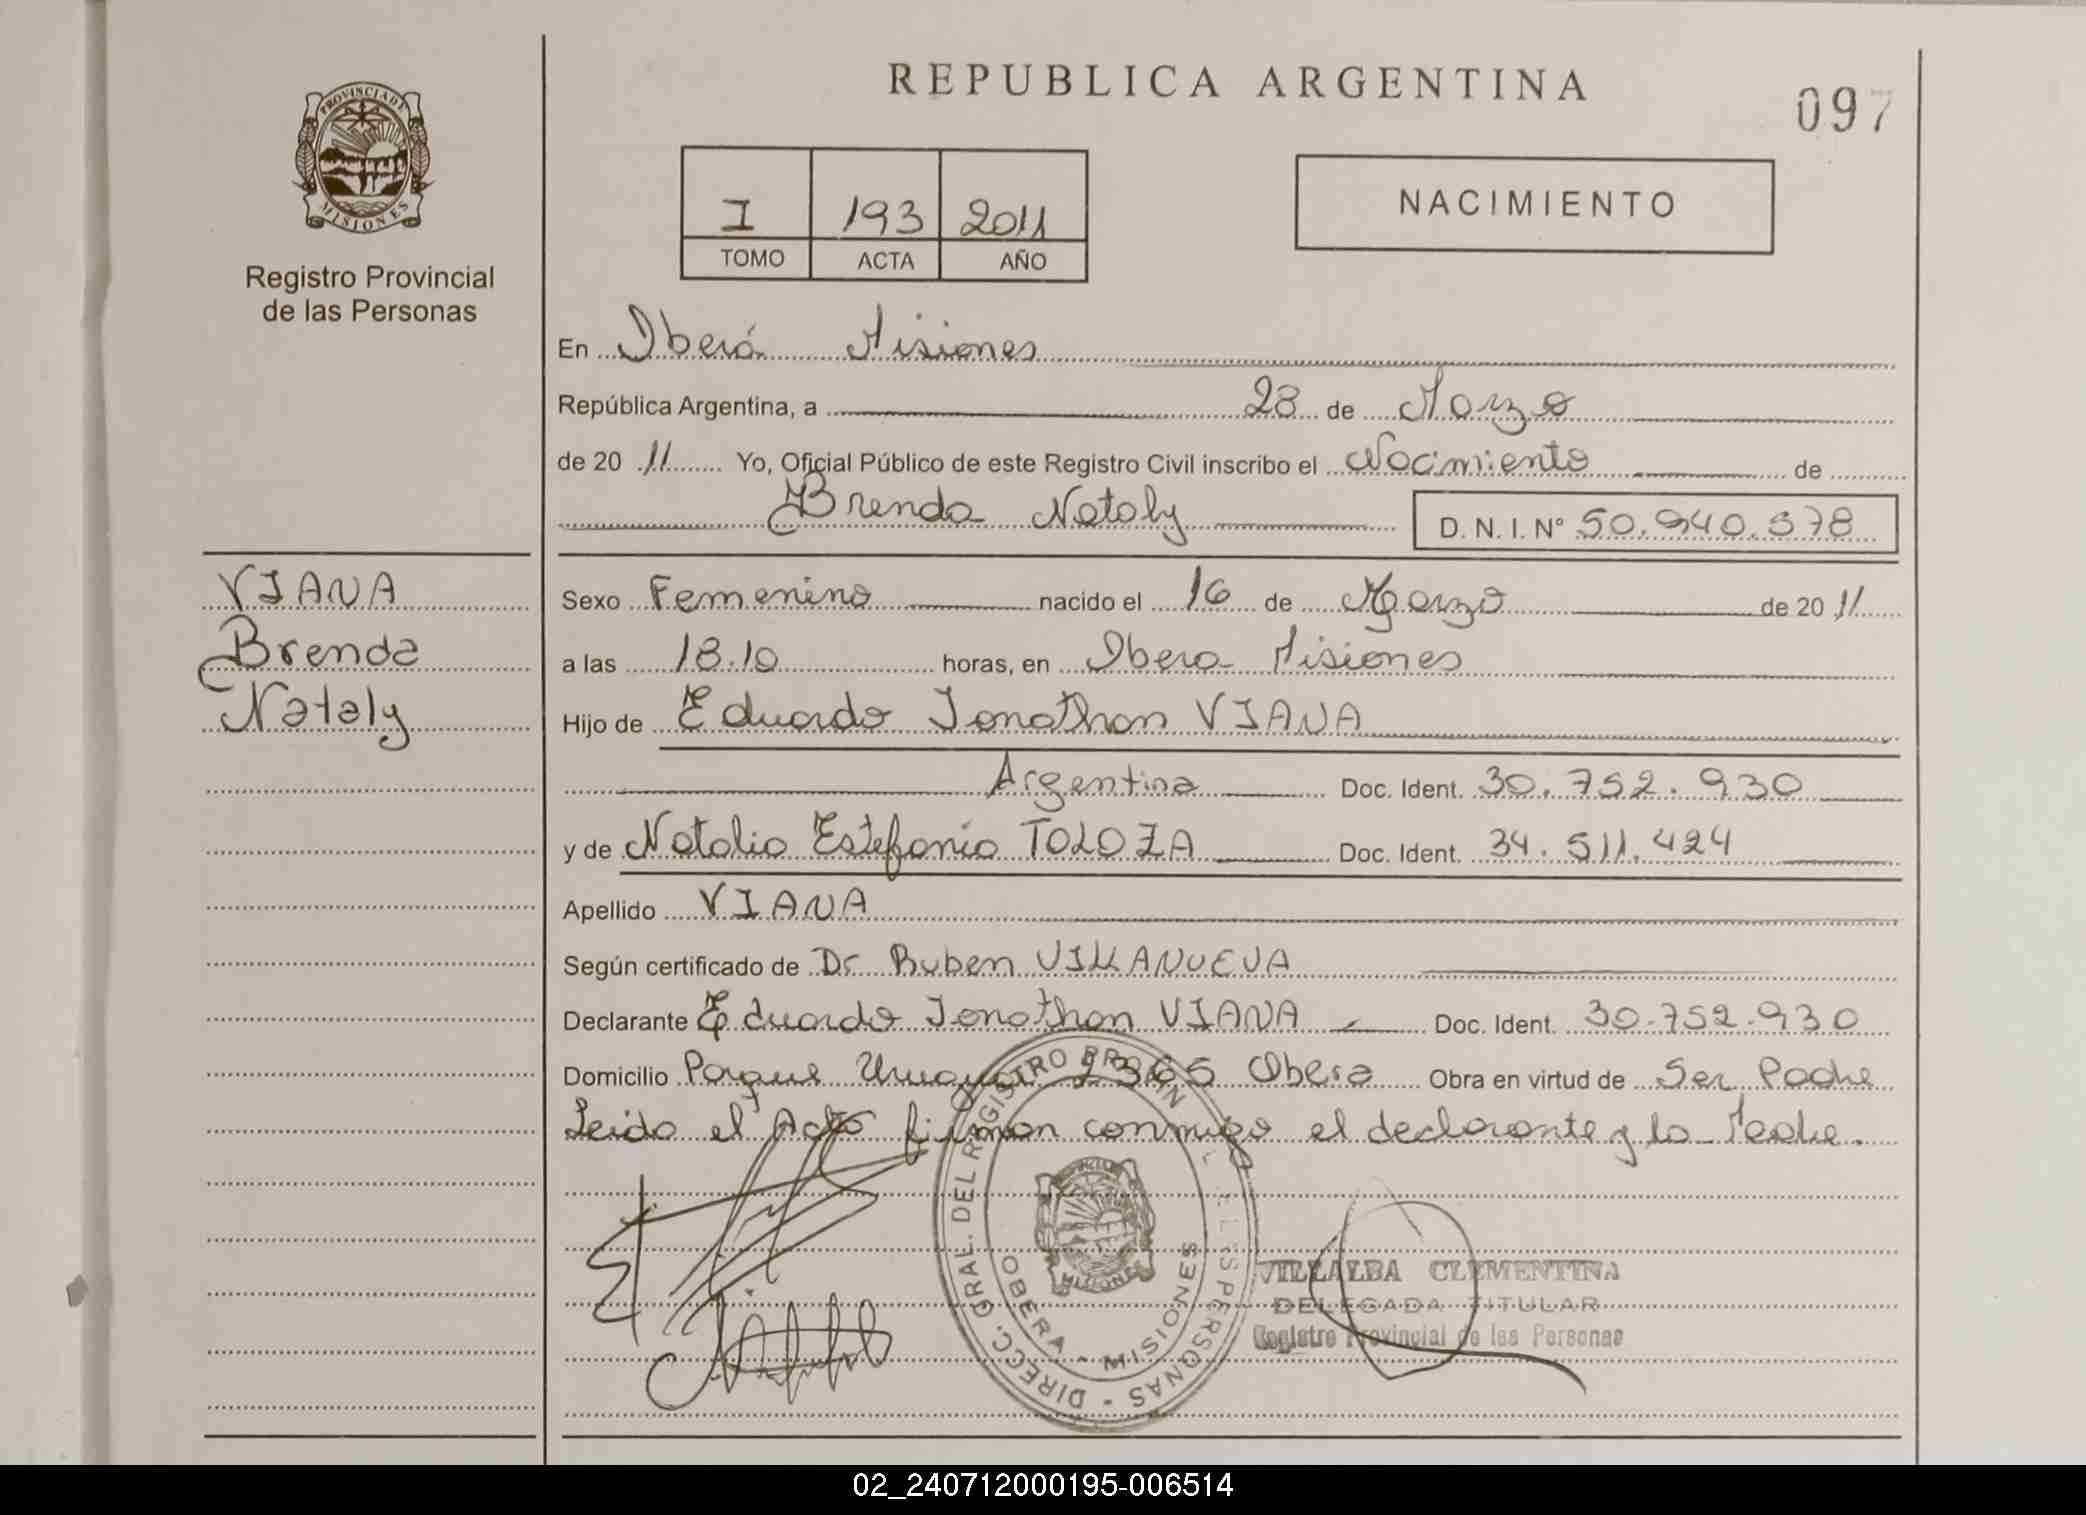 REPUBLICA ARGENTINA
097
PROVINCIA DE MISIONES
Registro Provincial
de las Personas
I 193 2011
TOMO ACTA AÑO
NACIMIENTO
En Oberá Misiones
República Argentina, a 28 de Marzo
de 20 11 Yo, Oficial Público de este Registro Civil inscribo el Nacimiento de
Brenda Nataly D. N. I. N° 50.940.578
VIANA
Brenda
Nataly
Sexo Femenino nacido el 16 de Marzo de 20 11
a las 18.10 horas, en Obera Misiones
Hijo de Eduardo Jonathan VIANA
Argentina Doc. Ident. 30.752.930
y de Natalia Estefania TOLOZA Doc. Ident. 34.511.424
Apellido VIANA
Según certificado de Dr Ruben VILLANUEVA
Declarante Eduardo Jonathan VIANA Doc. Ident. 30.752.930
Domicilio Parque Uruguay 365 Obera Obra en virtud de Ser Padre
Leido el Acta firman conmigo el declarante y la Madre.
DIRECC. GRAL. DEL REGISTRO PROVINCIAL DE LAS PERSONAS
OBERA - MISIONES
MISIONES
VILLALBA CLEMENTINA
DELEGADA TITULAR
Registro Provincial de las Personas
02_240712000195-006514